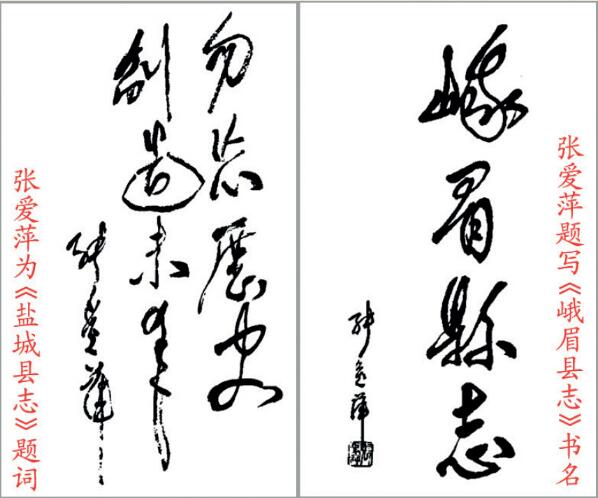 勿忘歷史
創造未来
张爱萍
张爱萍为《盐城县志》题词
张爱萍题写《峨眉县志》书名
峨眉縣志
张爱萍